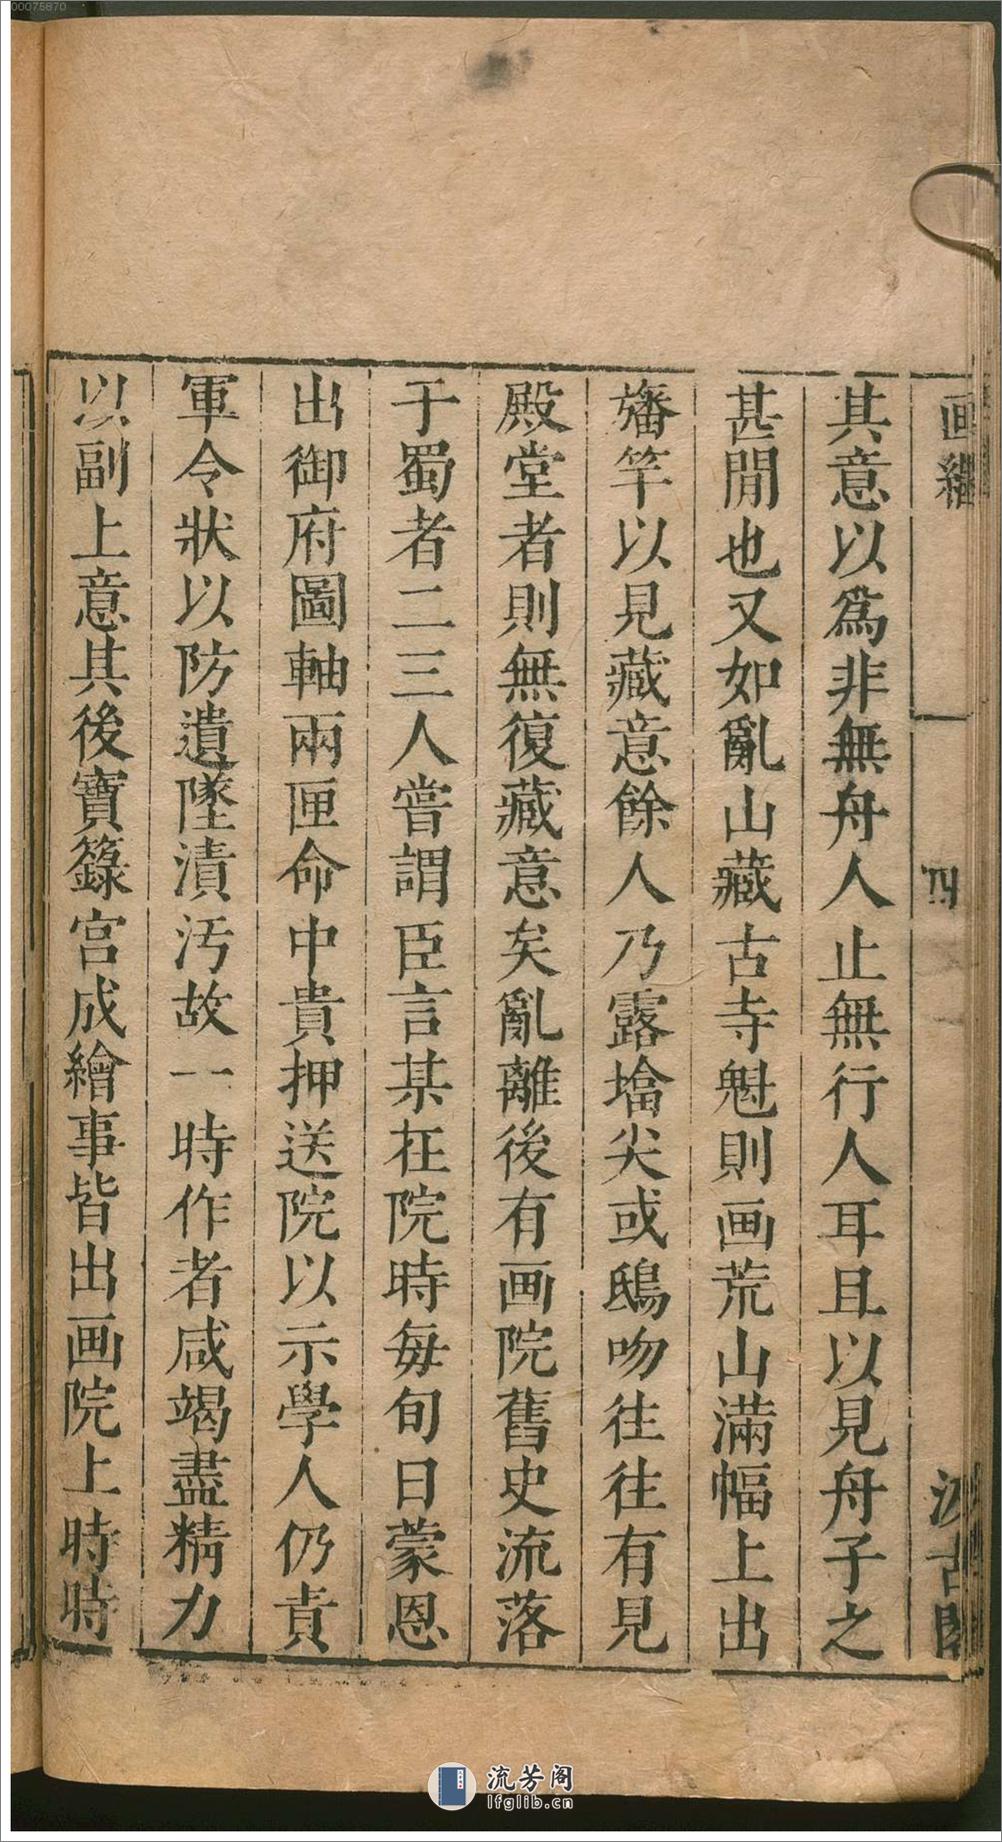 00075870
画繼
四
汲古閣
其意以爲非無舟人止無行人耳且以見舟子之
甚閒也又如亂山藏古寺魁則画荒山滿幅上出
旛竿以見藏意餘人乃露墖尖或鴟吻往往有見
殿堂者則無復藏意矣亂離後有画院舊史流落
于蜀者二三人嘗謂臣言某在院時每旬日蒙恩
出御府圖軸兩匣命中貴押送院以示學人仍責
軍令狀以防遺墜漬汚故一時作者咸竭盡精力
以副上意其後寶籙宮成繪事皆出画院上時時
流芳阁
lfglib.cn